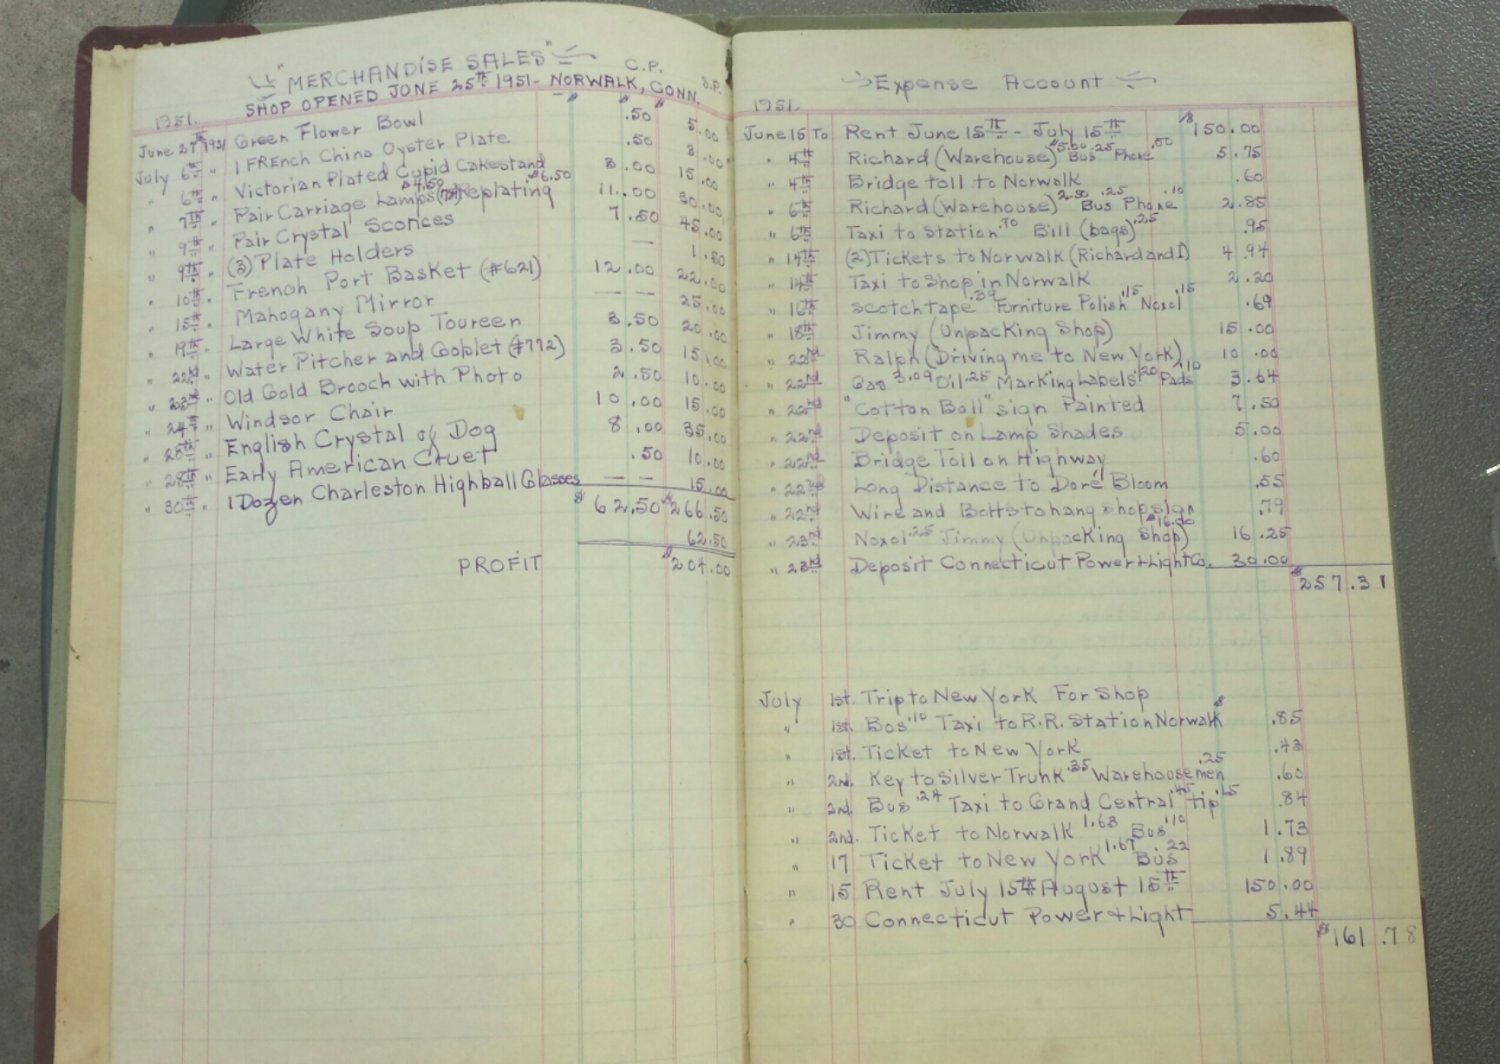 "MERCHANDISE SALES" C.P. S.P.
SHOP OPENED JUNE 25TH 1951- NORWALK, CONN.
1951.
June 27th 1951 Green Flower Bowl $ .50 $ 5.00
July 6th " 1 FREnch China Oyster Plate .50 3.00
" 6th " Victorian Plated Cupid Cakestand 3.00 15.00
" 7th " Pair Carriage Lamps $4.50 Replating $6.50 11.00 30.00
" 9th " Pair Crystal Sconces 7.50 45.00
" 9th " (3) Plate Holders — 1.50
" 10th " French Port Basket (#621) 12.00 22.00
" 15th " Mahogany Mirror — — 25.00
" 19th " Large White Soup Toureen 3.50 20.00
" 22nd " Water Pitcher and Goblet (#772) 3.50 15.00
" 23rd " Old Gold Brooch with Photo 2.50 10.00
" 24th " Windsor Chair 10.00 15.00
" 26th " English Crystal of Dog 8.00 35.00
" 28th " Early American Cruet .50 10.00
" 30th " 1 Dozen Charleston Highball Glasses — — 15.00
$ 62.50 $ 266.50
62.50
PROFIT $204.00
Expense Account
1951.
June 15 To Rent June 15TH - July 15TH $150.00
" 4th Richard (Warehouse) $5.00 Bus .25 Phone .50 5.75
" 4th Bridge toll to Norwalk .60
" 6th Richard (Warehouse) 2.50 Bus .25 Phone .10 2.85
" 6th Taxi to Station .70 Bill (bags) .25 .95
" 14th (2) Tickets to Norwalk (Richard and I) 4.94
" 14th Taxi to Shop in Norwalk 2.20
" 16th Scotch tape .39 Furniture Polish .15 Noxol .15 .69
" 18th Jimmy (Unpacking Shop) 15.00
" 22nd Ralph (Driving me to New York) 10.00
" 22nd Gas 3.09 Oil .25 Marking Labels .20 Pads .10 3.64
" 22nd "Cotton Ball" sign Painted 7.50
" 22nd Deposit on Lamp Shades 5.00
" 22nd Bridge Toll on Highway .60
" 22nd Long Distance to Doré Bloom .55
" 22nd Wire and Bolts to hang shop sign .79
" 23rd Noxol .25 Jimmy (Unpacking Shop) $16.00 16.25
" 23rd Deposit Connecticut Power & Light Co. 30.00
$257.31
July 1st. Trip to New York For Shop
" 1st. Bus .10 Taxi to R.R. Station Norwalk $ .85
" 1st. Ticket to New York .43
" 2nd. Key to Silver Trunk .35 Warehousemen .25 .60
" 2nd. Bus .24 Taxi to Grand Central .45 tip .15 .84
" 2nd. Ticket to Norwalk 1.63 Bus .10 1.73
" 17 Ticket to New York 1.67 Bus .22 1.89
" 15 Rent July 15th August 15TH 150.00
" 30 Connecticut Power & Light 5.44
$161.78